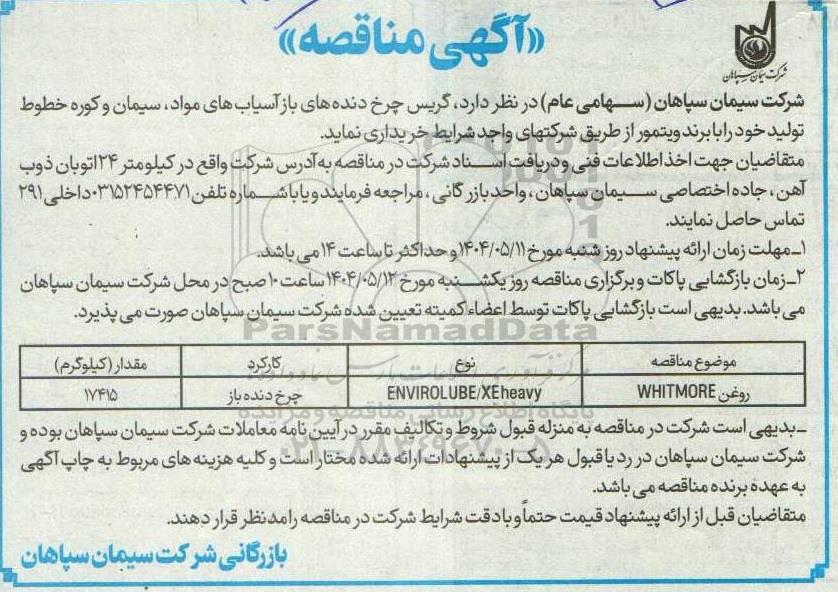 «آگهی مناقصه»
شرکت سیمان سپاهان
شرکت سیمان سپاهان (سهامی عام) در نظر دارد، گریس چرخ دنده های باز آسیاب های مواد، سیمان و کوره خطوط
تولید خود را با برند ویتمور از طریق شرکتهای واجد شرایط خریداری نماید.
متقاضیان جهت اخذ اطلاعات فنی و دریافت اسناد شرکت در مناقصه به آدرس شرکت واقع در کیلومتر ۲۴ اتوبان ذوب
آهن، جاده اختصاصی سیمان سپاهان، واحد بازرگانی، مراجعه فرمایند و یا با شماره تلفن ۰۳۱۵۲۴۵۴۴۷۱ داخلی ۲۹۱
تماس حاصل نمایند.
۱ـ مهلت زمان ارائه پیشنهاد روز شنبه مورخ ۱۴۰۴/۰۵/۱۱ و حداکثر تا ساعت ۱۴ می باشد.
۲ـ زمان بازگشایی پاکات و برگزاری مناقصه روز یکشنبه مورخ ۱۴۰۴/۰۵/۱۲ ساعت ۱۰ صبح در محل شرکت سیمان سپاهان
می باشد. بدیهی است بازگشایی پاکات توسط اعضاء کمیته تعیین شده شرکت سیمان سپاهان صورت می پذیرد.
ParsNamadData
موضوع مناقصه نوع کارکرد مقدار (کیلوگرم)
روغن WHITMORE ENVIROLUBE/XEheavy چرخ دنده باز ۱۷۴۱۵
پایگاه اطلاع رسانی مناقصه و مزایده
ـ بدیهی است شرکت در مناقصه به منزله قبول شروط و تکالیف مقرر در آیین نامه معاملات شرکت سیمان سپاهان بوده و
شرکت سیمان سپاهان در رد یا قبول هر یک از پیشنهادات ارائه شده مختار است و کلیه هزینه های مربوط به چاپ آگهی
به عهدۀ برنده مناقصه می باشد.
متقاضیان قبل از ارائه پیشنهاد قیمت حتماً و با دقت شرایط شرکت در مناقصه را مدنظر قرار دهند.
بازرگانی شرکت سیمان سپاهان